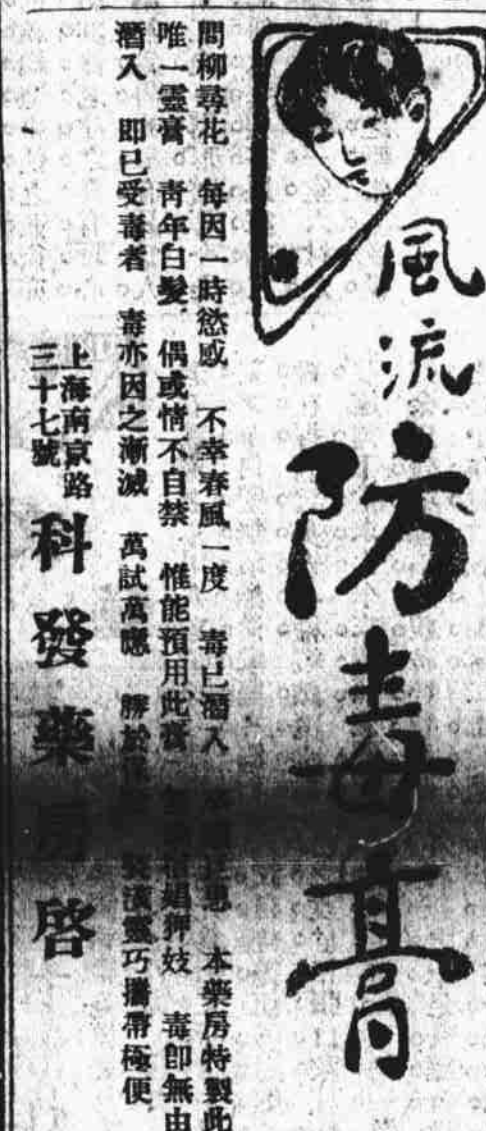 風流防毒膏
問柳尋花 每因一時慾感 不幸春風一度 毒已潛入 本藥房特製此
唯一靈膏 青年白髮 偶或情不自禁 惟能預用此膏 娼狎妓 毒即無由
潛入 即已受毒者 毒亦因之漸滅 萬試萬應 勝於 靈巧攜帶極便
上海南京路
三十七號
科發藥房啓